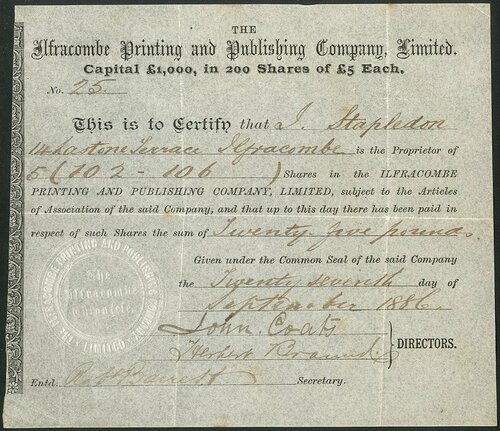 THE
Ilfracombe Printing and Publishing Company, Limited.
Capital £1,000, in 200 Shares of £5 Each.
No. 25.
This is to Certify that J. Stapledon
14 Larstone Terrace Ilfracombe is the Proprietor of
5 (102 - 106) Shares in the ILFRACOMBE
PRINTING AND PUBLISHING COMPANY, LIMITED, subject to the Articles
of Association of the said Company, and that up to this day there has been paid in
respect of such Shares the sum of Twenty five pounds
Given under the Common Seal of the said Company
the Twenty seventh day of
September 1886
THE ILFRACOMBE PRINTING AND PUBLISHING COMPANY LIMITED
The
Ilfracombe
John Coats
Herbert
DIRECTORS.
Entd. Robt Barrett Secretary.